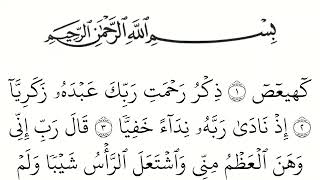 بِسْمِ اللَّهِ الرَّحْمَٰنِ الرَّحِيمِ
كٓهيعٓصٓ ١ ذِكْرُ رَحْمَتِ رَبِّكَ عَبْدَهُۥ زَكَرِيَّآ
٢ إِذْ نَادَىٰ رَبَّهُۥ نِدَآءً خَفِيًّا ٣ قَالَ رَبِّ إِنِّى
وَهَنَ ٱلْعَظْمُ مِنِّى وَٱشْتَعَلَ ٱلرَّأْسُ شَيْبًا وَلَمْ